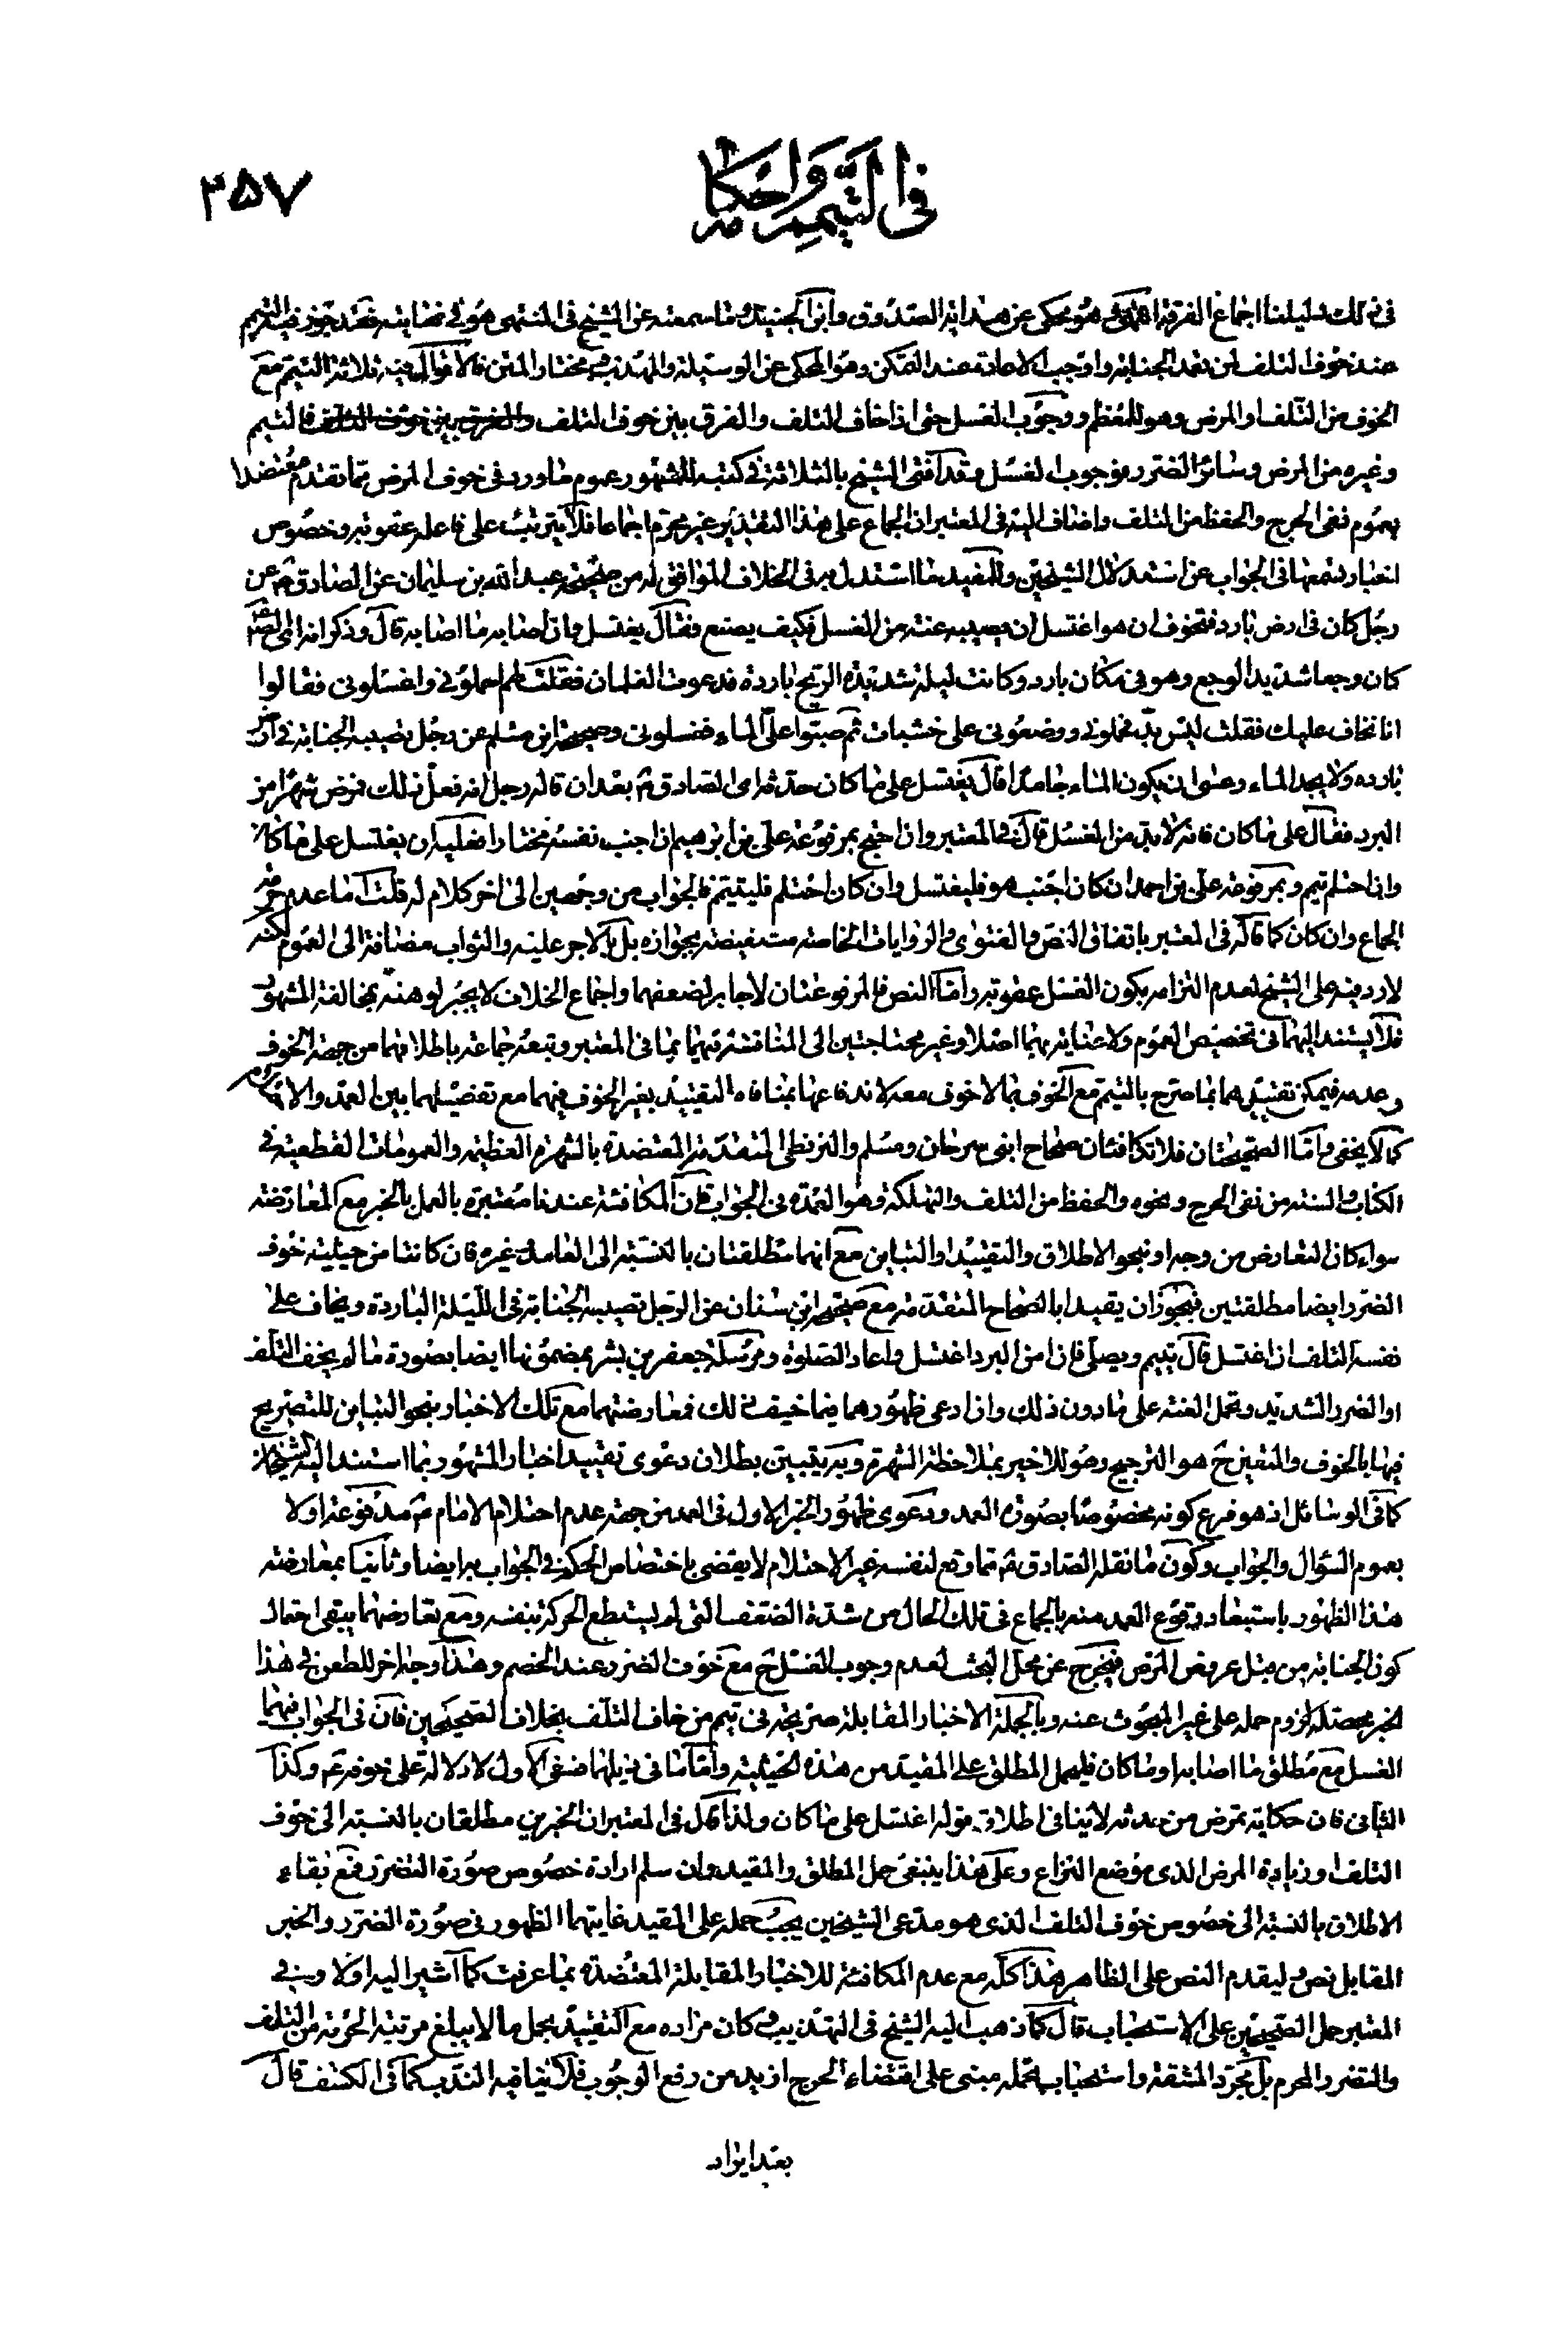 في التيمم واحكامه
٣٥٧
في ذلك دليلنا اجماع الفرقة انتهى وهو محكي عن هداية الصدوق وابن الجنيد وما سمعته عن الشيخ في المنتهى هو في نهايته فقد جوز فيه التيمم
عند خوف التلف لمن تعمد الجنابة واوجب الاعادة عند التمكن وهو المحكي عن الوسيلة والمهذب ومختار المتن فالاقوال فيه ثلاثة التيمم مع
الخوف من التلف او المرض وهو للمعظم ووجوب الغسل حتى اذا خاف التلف والفرق بين خوف التلف فالتيمم
وغيره من المرض وسائر الضرر فوجوب الغسل وقد افتى الشيخ بالثلاثة في كتبه للمشهور عموم ما ورد في خوف المرض مما تقدم معتضدا
بعموم نفي الحرج والحفظ من التلف واضاف اليه في المعتبر ان الجماع على هذا التقدير غير محرم اجماعا فلا يترتب على فاعله عقوبة وخصوص
اخبار تسمعها في الجواب عن استدلال الشيخين وللمفيد ما استدل به في الخلاف الموافق له من صحيحة عبد الله بن سليمان عن الصادق ع عن
رجل كان في ارض باردة فتخوف ان هو اغتسل ان يصيبه عنت من الغسل كيف يصنع فقال يغتسل وان اصابه ما اصابه قال وذكر انه
كان وجعا شديد الوجع وهو في مكان بارد وكانت ليلة شديدة الريح باردة فدعوت الغلمان فقلت لهم احملوني واغسلوني فقالوا
انا نخاف عليك فقلت ليس بد فحملوني ووضعوني على خشبات ثم صبوا علي الماء فغسلوني وصحيحة ابن مسلم عن رجل تصيبه الجنابة في ارض
باردة ولا يجد الماء وعسى ان يكون الماء جامدا قال يغتسل على ما كان حدثه اي الصادق ع بعد ان قال له رجل انه فعل ذلك فمرض شهرا من
البرد فقال على ما كان فانه لا بد من الغسل قال في المعتبر وان احتج بمرفوعة علي بن ابراهيم ان اجنب نفسه مختارا فعليه ان يغتسل على ما كان
وان احتلم تيمم وبمرفوعة علي بن احمد ان كان اجنب هو فليغتسل وان كان احتلم فليتيمم فالجواب من وجهين الى اخر كلامه قلت ما عدم حرمة
الجماع وان كان كما قاله في المعتبر باتفاق النص والفتوى والروايات الخاصة مستفيضة بجوازه بل بالاجر عليه والثواب مضافة الى العموم لكنه
لا رد فيه على الشيخ لعدم التزامه بكون الغسل عقوبة واما النص فالمرفوعتان لا جابر لضعفهما واجماع الخلاف لا يجبر لوهنه بمخالفة المشهور
فلا يستند اليهما في تخصيص العموم ولا عناية بهما اصلا وغير محتاجتين الى المناقشة فيهما بما في المعتبر وتبعه جماعة باطلاقهما من جهة الخوف
وعدمه فيمكن تقييدهما بما صرح بالتيمم مع الخوف بما لا خوف معه لاندفاعها بمنافاة التقييد بغير الخوف فيهما مع تفصيلهما بين العمد والاحتلام
كما لا يخفى واما الصحيحتان فلا تكافئان صحاح ابني سرحان ومسلم والبزنطي المتقدمة المعتضدة بالشهرة العظيمة والعمومات القطعية في
الكتاب والسنة من نفي الحرج ونحوه والحفظ من التلف والتهلكة وهو العمدة في الجواب فان المكافئة عندنا معتبرة بالعمل بالخبر مع المعارضة
سواء كان التعارض من وجه او نحو الاطلاق والتقييد او التباين مع انهما مطلقتان بالنسبة الى العامد وغيره فان كانتا من حيثية خوف
الضرر ايضا مطلقتين فيجوز ان يقيدا بالصحاح المتقدمة مع صحيحة ابن سنان عن الرجل تصيبه الجنابة في الليلة الباردة ويخاف على
نفسه التلف ان اغتسل قال تيمم ويصلي فان امن البرد اغتسل واعاد الصلوة ومرسلة جعفر بن بشير بمضمونها ايضا بصورة ما لم يخف التلف
او الضرر الشديد ويحمل العنت على ما دون ذلك وان ادعي ظهورهما فيما خيف ذلك فمعارضتهما مع تلك الاخبار بنحو التباين للتصريح
فيها بالخوف والمتعين ح هو الترجيح وهو للاخير بملاحظة الشهرة وبه يتبين بطلان دعوى تقييد اخبار المشهور بما استند اليه الشيخان
كما في الوسائل اذ هو فرع كونه مخصوصا بصورة العمد ودعوى ظهور الخبر الاول في العمد من جهة عدم احتلام الامام ع مدفوعة اولا
بعموم السؤال والجواب وكون ما نقله الصادق ع مما وقع لنفسه غير الاحتلام لا يقضي باختصاص الحكم في الجواب به ايضا وثانيا بمعارضة
هذا الظهور باستبعاد وقوع العمد منه بالجماع في تلك الحال من شدة الضعف التي لم يستطع الحركة بنفسه ومع تعارضهما يبقى احتمال
كون الجنابة من قبل عروض المرض فيخرج عن محل البحث لعدم وجوب الغسل ح مع خوف الضرر عند الخصم وهذا وجه اخر للطعن في هذا
الخبر بحصته للزوم حمله على غير المبحوث عنه وبالجملة الاخبار المقابلة صريحة في تيمم من خاف التلف بخلاف الصحيحين فان في الجواب فيهما
الغسل مع مطلق ما اصابه او ما كان فليحمل المطلق على المقيد من هذه الحيثية واما ما في ذيلهما ففي الاول لا دلالة على خوفه ع وكذا
الثاني فان حكاية تمرض من حدثه لا ينافي اطلاق قوله اغتسل على ما كان ولذا قال في المعتبر ان الخبرين مطلقان بالنسبة الى خوف
التلف او زيادة المرض الذي موضع النزاع وعلى هذا ينبغي حمل المطلق والمقيد وان سلم ارادة خصوص صورة التضرر فمع بقاء
الاطلاق بالنسبة الى خصوص خوف التلف الذي هو مدعى الشيخين يجب حمله على المقيد غايتهما الظهور في صورة الضرر والخبر
المقابل نص وليقدم النص على الظاهر هذا كله مع عدم المكافئة للاخبار المقابلة المعتضدة بما عرفت كما اشير اليه اولا وفي
المعتبر حمل الصحيحين على الاستحباب قال كما ذهب اليه الشيخ في التهذيب وكان مراده مع التقييد بحمل ما لا يبلغ مرتبة الحرمة من التلف
والتضرر المحرم بل مجرد المشقة واستحباب تحمله مبني على اقتضاء الحرج ازيد من رفع الوجوب فلا ينافيه الندب كما في الكشف قال
بعد ايراد